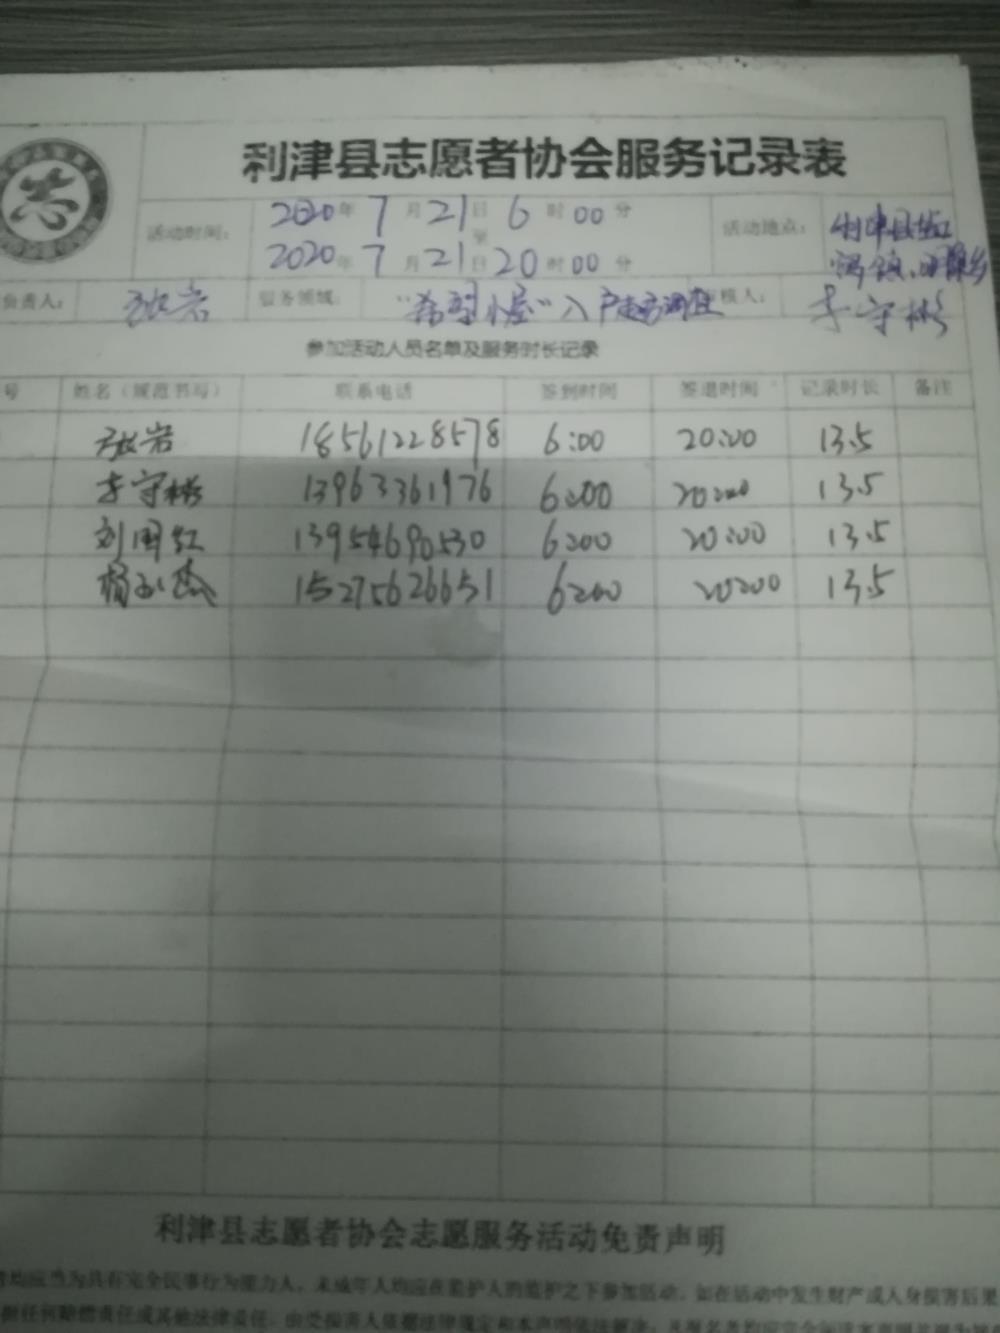 利津县志愿者协会服务记录表
活动时间：
2020年7月21日6时00分
至
2020年7月21日20时00分
活动地点：
利津县盐
窝镇、
负责人：
张岩
服务领域：
“希望小屋”入户走访调查
审核人：
李守彬
参加活动人员名单及服务时长记录
号 姓名（规范书写） 联系电话 签到时间 签退时间 记录时长 备注
张岩 18561228578 6:00 20:00 13.5
李守彬 13963361976 6:00 20:00 13.5
刘国红 13954690530 6:00 20:00 13.5
杨玉杰 15275626651 6:00 20:00 13.5
利津县志愿者协会志愿服务活动免责声明
均应当为具有完全民事行为能力人，未成年人均应在监护人的监护之下参加活动，如在活动中发生财产或人身损害后果
担任何赔偿责任或其他法律责任，由受损害人依据法律规定和本声明依法解决，